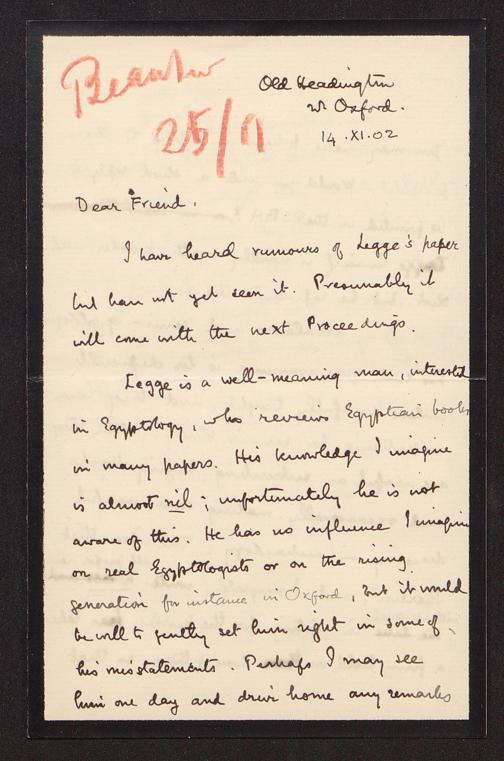 Old Headington
nr Oxford.
14.XI.02
25/11
Dear Friend.
I have heard rumours of Legge's paper
but have not yet seen it. Presumably it
will come with the next Proceedings.
Legge is a well-meaning man, interested
in Egyptology, who reviews Egyptian books
in many papers. His knowledge I imagine
is almost nil; unfortunately he is not
aware of this. He has no influence I imagine
on real Egyptologists or on the rising
generation for instance in Oxford, but it would
be well to gently set him right in some of
his misstatements. Perhaps I may see
him one day and drive home any remarks